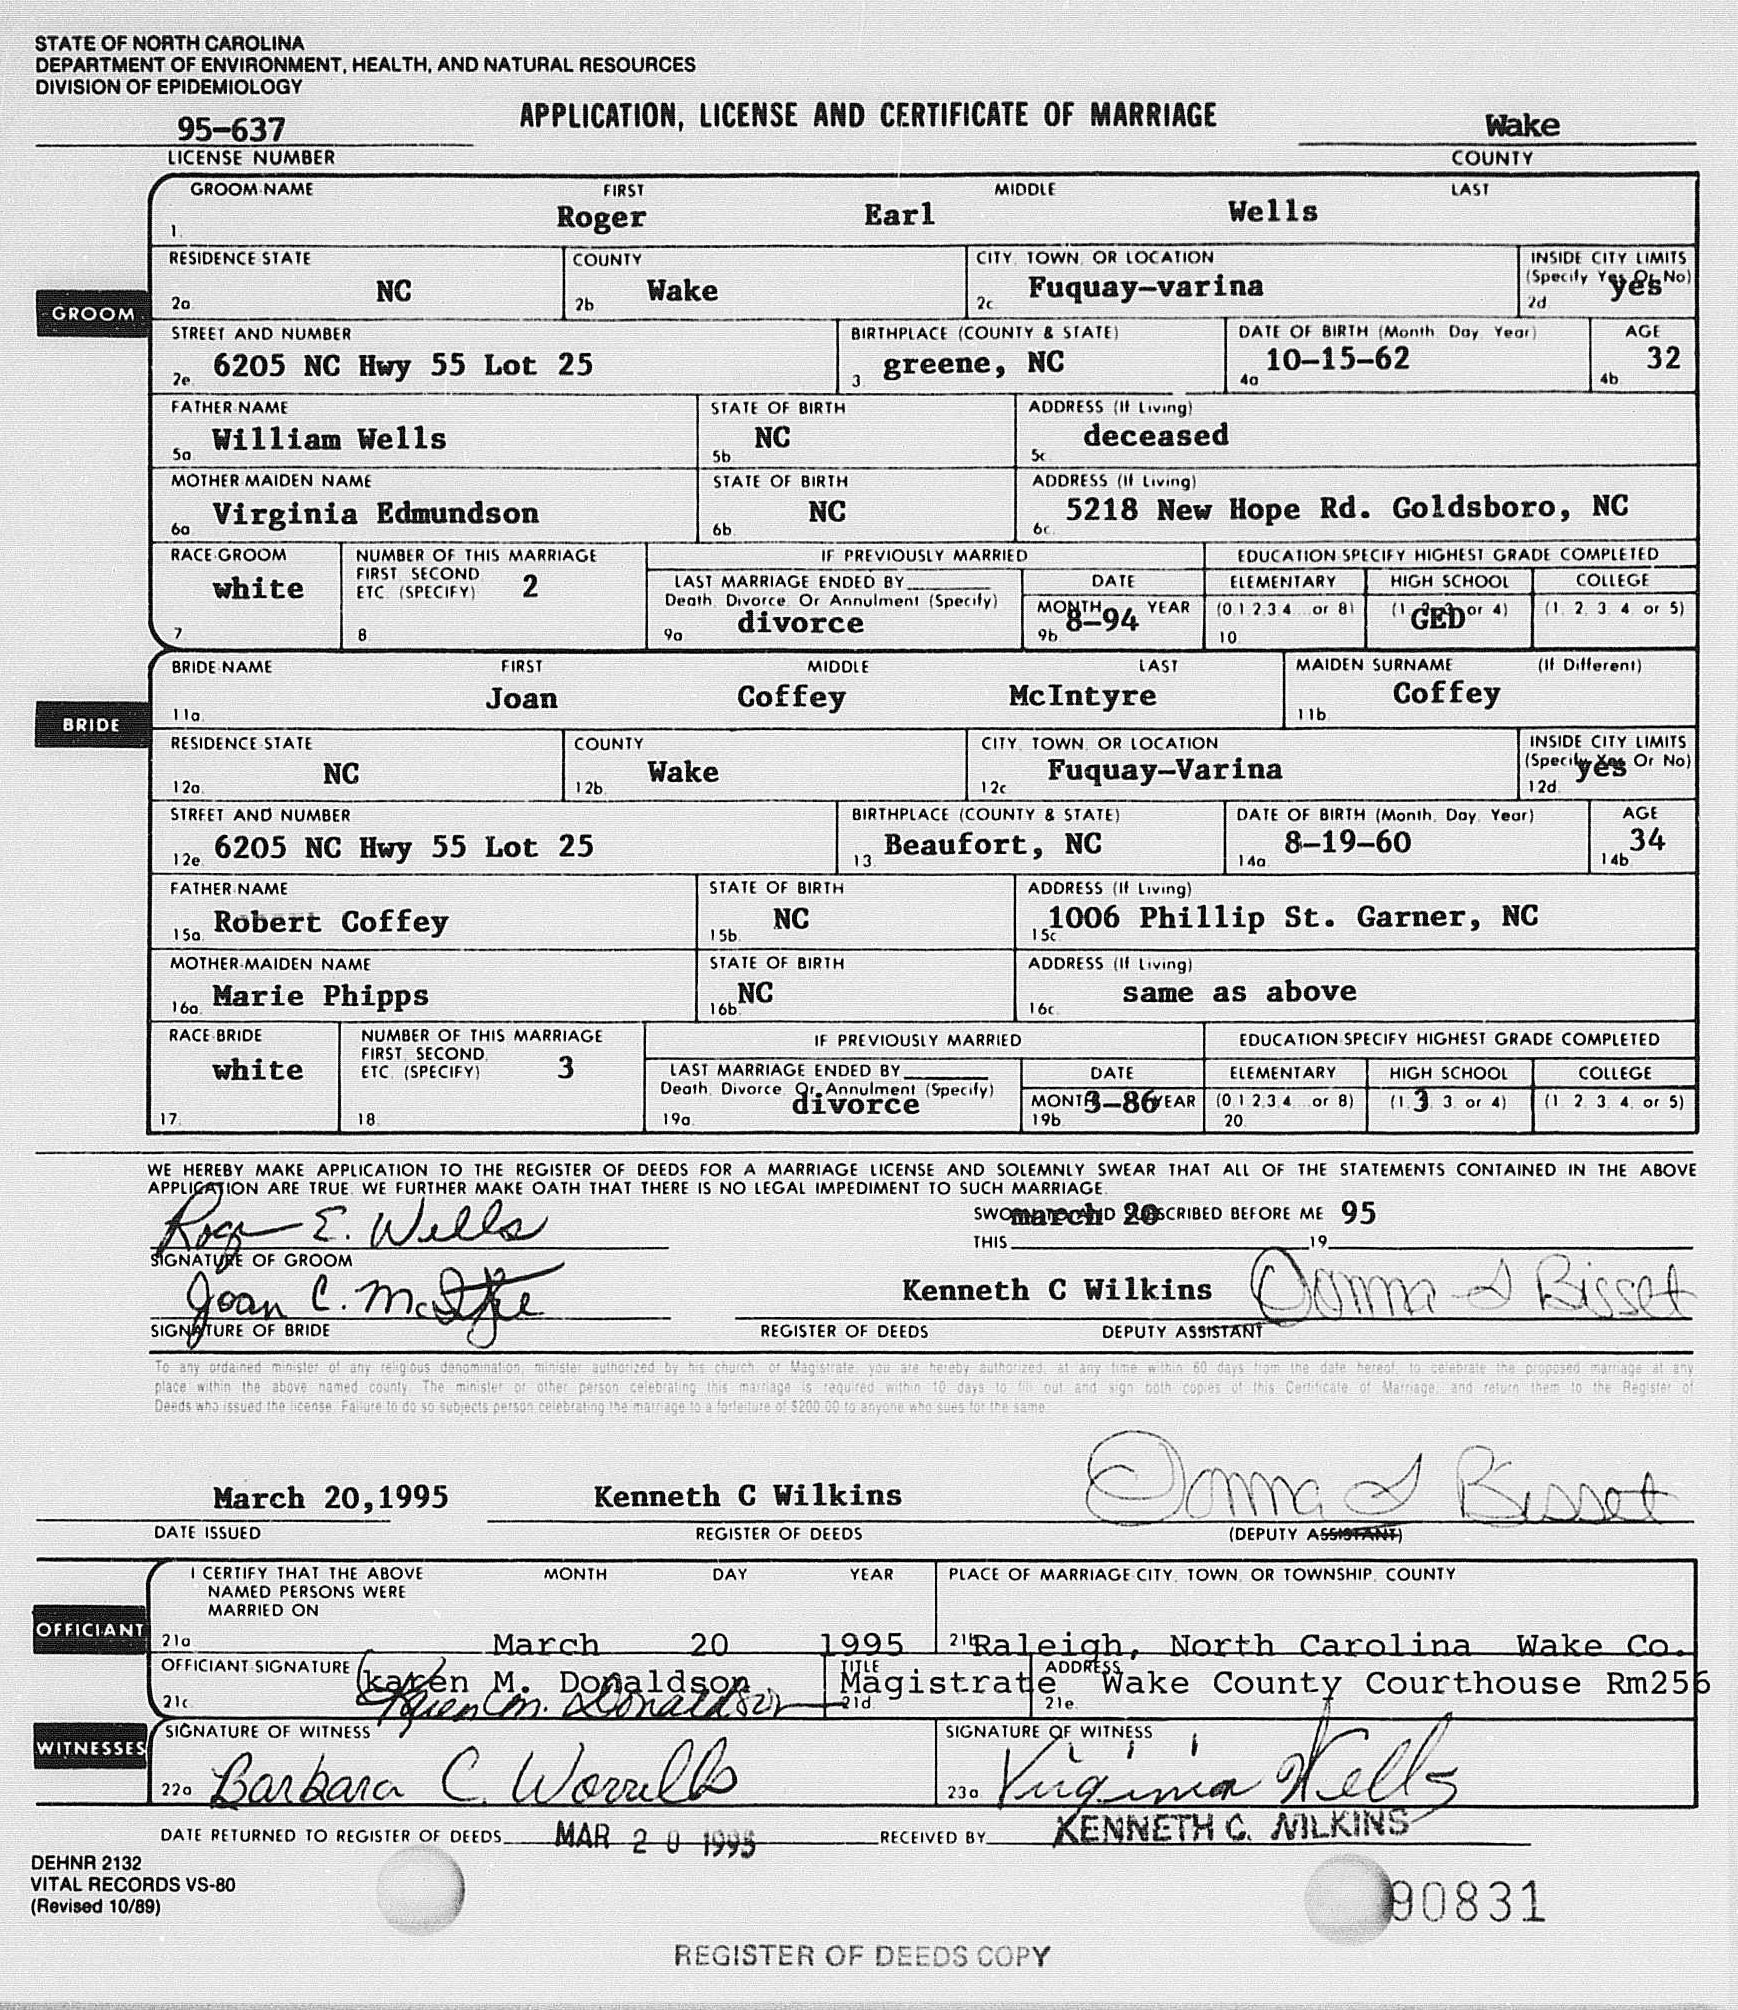 STATE OF NORTH CAROLINA
DEPARTMENT OF ENVIRONMENT, HEALTH, AND NATURAL RESOURCES
DIVISION OF EPIDEMIOLOGY
95-637 APPLICATION, LICENSE AND CERTIFICATE OF MARRIAGE Wake
LICENSE NUMBER COUNTY
GROOM-NAME FIRST MIDDLE LAST
1. Roger Earl Wells
RESIDENCE-STATE COUNTY CITY, TOWN, OR LOCATION INSIDE CITY LIMITS (Specify Yes Or No)
GROOM 2a NC 2b Wake 2c Fuquay-varina 2d yes
STREET AND NUMBER BIRTHPLACE (COUNTY & STATE) DATE OF BIRTH (Month, Day, Year) AGE
2e. 6205 NC Hwy 55 Lot 25 3 greene, NC 4a 10-15-62 4b 32
FATHER-NAME STATE OF BIRTH ADDRESS (If Living)
5a William Wells 5b NC 5c deceased
MOTHER-MAIDEN NAME STATE OF BIRTH ADDRESS (If Living)
6a Virginia Edmundson 6b NC 6c. 5218 New Hope Rd. Goldsboro, NC
RACE-GROOM NUMBER OF THIS MARRIAGE IF PREVIOUSLY MARRIED EDUCATION-SPECIFY HIGHEST GRADE COMPLETED
white FIRST, SECOND ETC. (SPECIFY) 2 LAST MARRIAGE ENDED BY DATE ELEMENTARY HIGH SCHOOL COLLEGE
Death, Divorce, Or Annulment (Specify) MONTH YEAR (0 1 2 3 4 ... or 8) (1, 2, 3 or 4) (1, 2, 3, 4 or 5)
7 8 9a divorce 9b 8-94 10 GED
BRIDE-NAME FIRST MIDDLE LAST MAIDEN SURNAME (If Different)
11a. Joan Coffey McIntyre 11b Coffey
BRIDE
RESIDENCE-STATE COUNTY CITY, TOWN, OR LOCATION INSIDE CITY LIMITS (Specify Yes Or No)
12a. NC 12b. Wake 12c Fuquay-Varina 12d yes
STREET AND NUMBER BIRTHPLACE (COUNTY & STATE) DATE OF BIRTH (Month, Day, Year) AGE
12e. 6205 NC Hwy 55 Lot 25 13. Beaufort, NC 14a. 8-19-60 14b 34
FATHER-NAME STATE OF BIRTH ADDRESS (If Living)
15a. Robert Coffey 15b. NC 15c 1006 Phillip St. Garner, NC
MOTHER-MAIDEN NAME STATE OF BIRTH ADDRESS (If Living)
16a. Marie Phipps 16b. NC 16c same as above
RACE-BRIDE NUMBER OF THIS MARRIAGE IF PREVIOUSLY MARRIED EDUCATION-SPECIFY HIGHEST GRADE COMPLETED
white FIRST, SECOND, ETC. (SPECIFY) 3 LAST MARRIAGE ENDED BY DATE ELEMENTARY HIGH SCHOOL COLLEGE
Death, Divorce, Or Annulment (Specify) MONTH YEAR (0 1 2 3 4 ... or 8) (1, 2, 3, or 4) (1, 2, 3, 4, or 5)
17. 18. 19a. divorce 19b. 3-86 20. 3
WE HEREBY MAKE APPLICATION TO THE REGISTER OF DEEDS FOR A MARRIAGE LICENSE AND SOLEMNLY SWEAR THAT ALL OF THE STATEMENTS CONTAINED IN THE ABOVE
APPLICATION ARE TRUE. WE FURTHER MAKE OATH THAT THERE IS NO LEGAL IMPEDIMENT TO SUCH MARRIAGE.
Roger E. Wells SWORN TO AND SUBSCRIBED BEFORE ME
SIGNATURE OF GROOM THIS march 20 19 95
Joan C. McIntyre Kenneth C Wilkins Donna S Bisset
SIGNATURE OF BRIDE REGISTER OF DEEDS DEPUTY ASSISTANT
To any ordained minister of any religious denomination, minister authorized by his church, or Magistrate, you are hereby authorized, at any time within 60 days from the date hereof, to celebrate the proposed marriage at any
place within the above named county. The minister or other person celebrating this marriage is required within 10 days to fill out and sign both copies of this Certificate of Marriage, and return them to the Register of
Deeds who issued the license. Failure to do so subjects person celebrating the marriage to a forfeiture of $200.00 to anyone who sues for the same.
March 20,1995 Kenneth C Wilkins Donna S Bisset
DATE ISSUED REGISTER OF DEEDS (DEPUTY ASSISTANT)
I CERTIFY THAT THE ABOVE MONTH DAY YEAR PLACE OF MARRIAGE-CITY, TOWN, OR TOWNSHIP, COUNTY
NAMED PERSONS WERE
MARRIED ON
OFFICIANT 21a March 20 1995 21b Raleigh, North Carolina Wake Co.
OFFICIANT-SIGNATURE karen M. Donaldson TITLE Magistrate ADDRESS Wake County Courthouse Rm256
21c. Karen M. Donaldson 21d 21e.
WITNESSES SIGNATURE OF WITNESS SIGNATURE OF WITNESS
22a Barbara C. Worrells 23a Virginia Wells
DATE RETURNED TO REGISTER OF DEEDS MAR 20 1995 RECEIVED BY KENNETH C. WILKINS
DEHNR 2132
VITAL RECORDS VS-80
(Revised 10/89)
90831
REGISTER OF DEEDS COPY